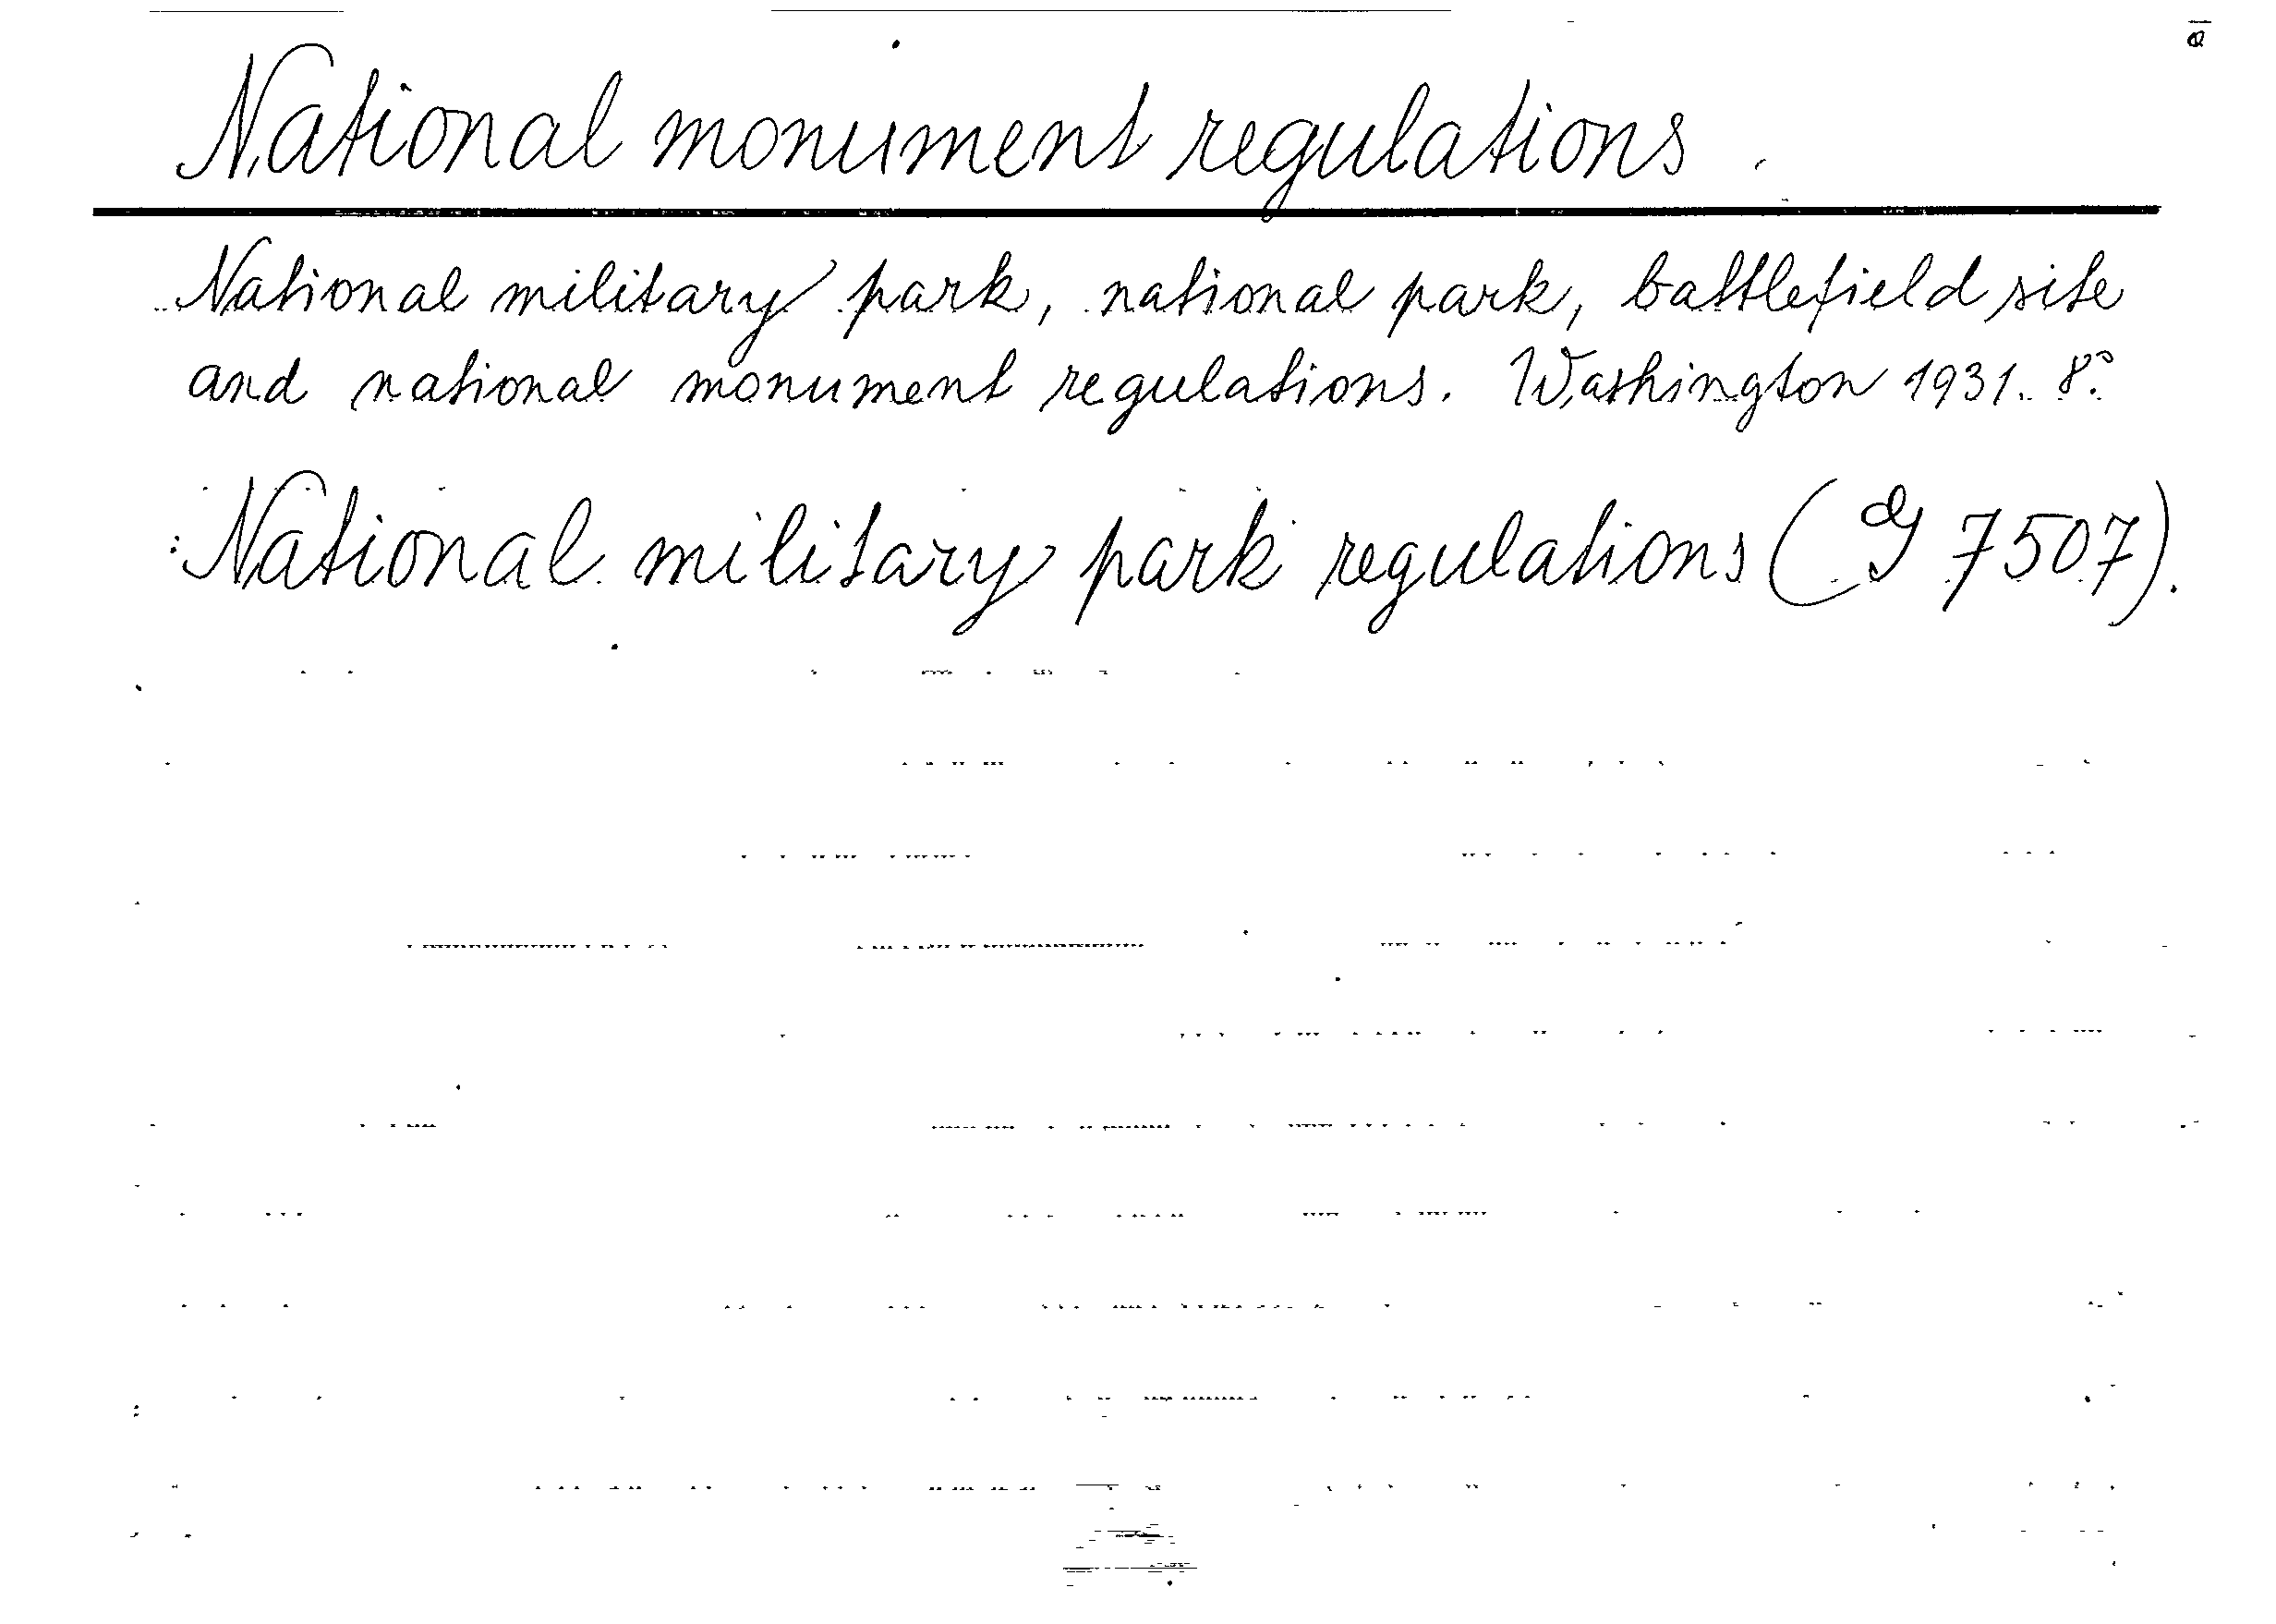 National monument regulations
National military park, national park, battlefield site
and national monument regulations. Washington 1931. 8°.
National military park regulations (G 7507).